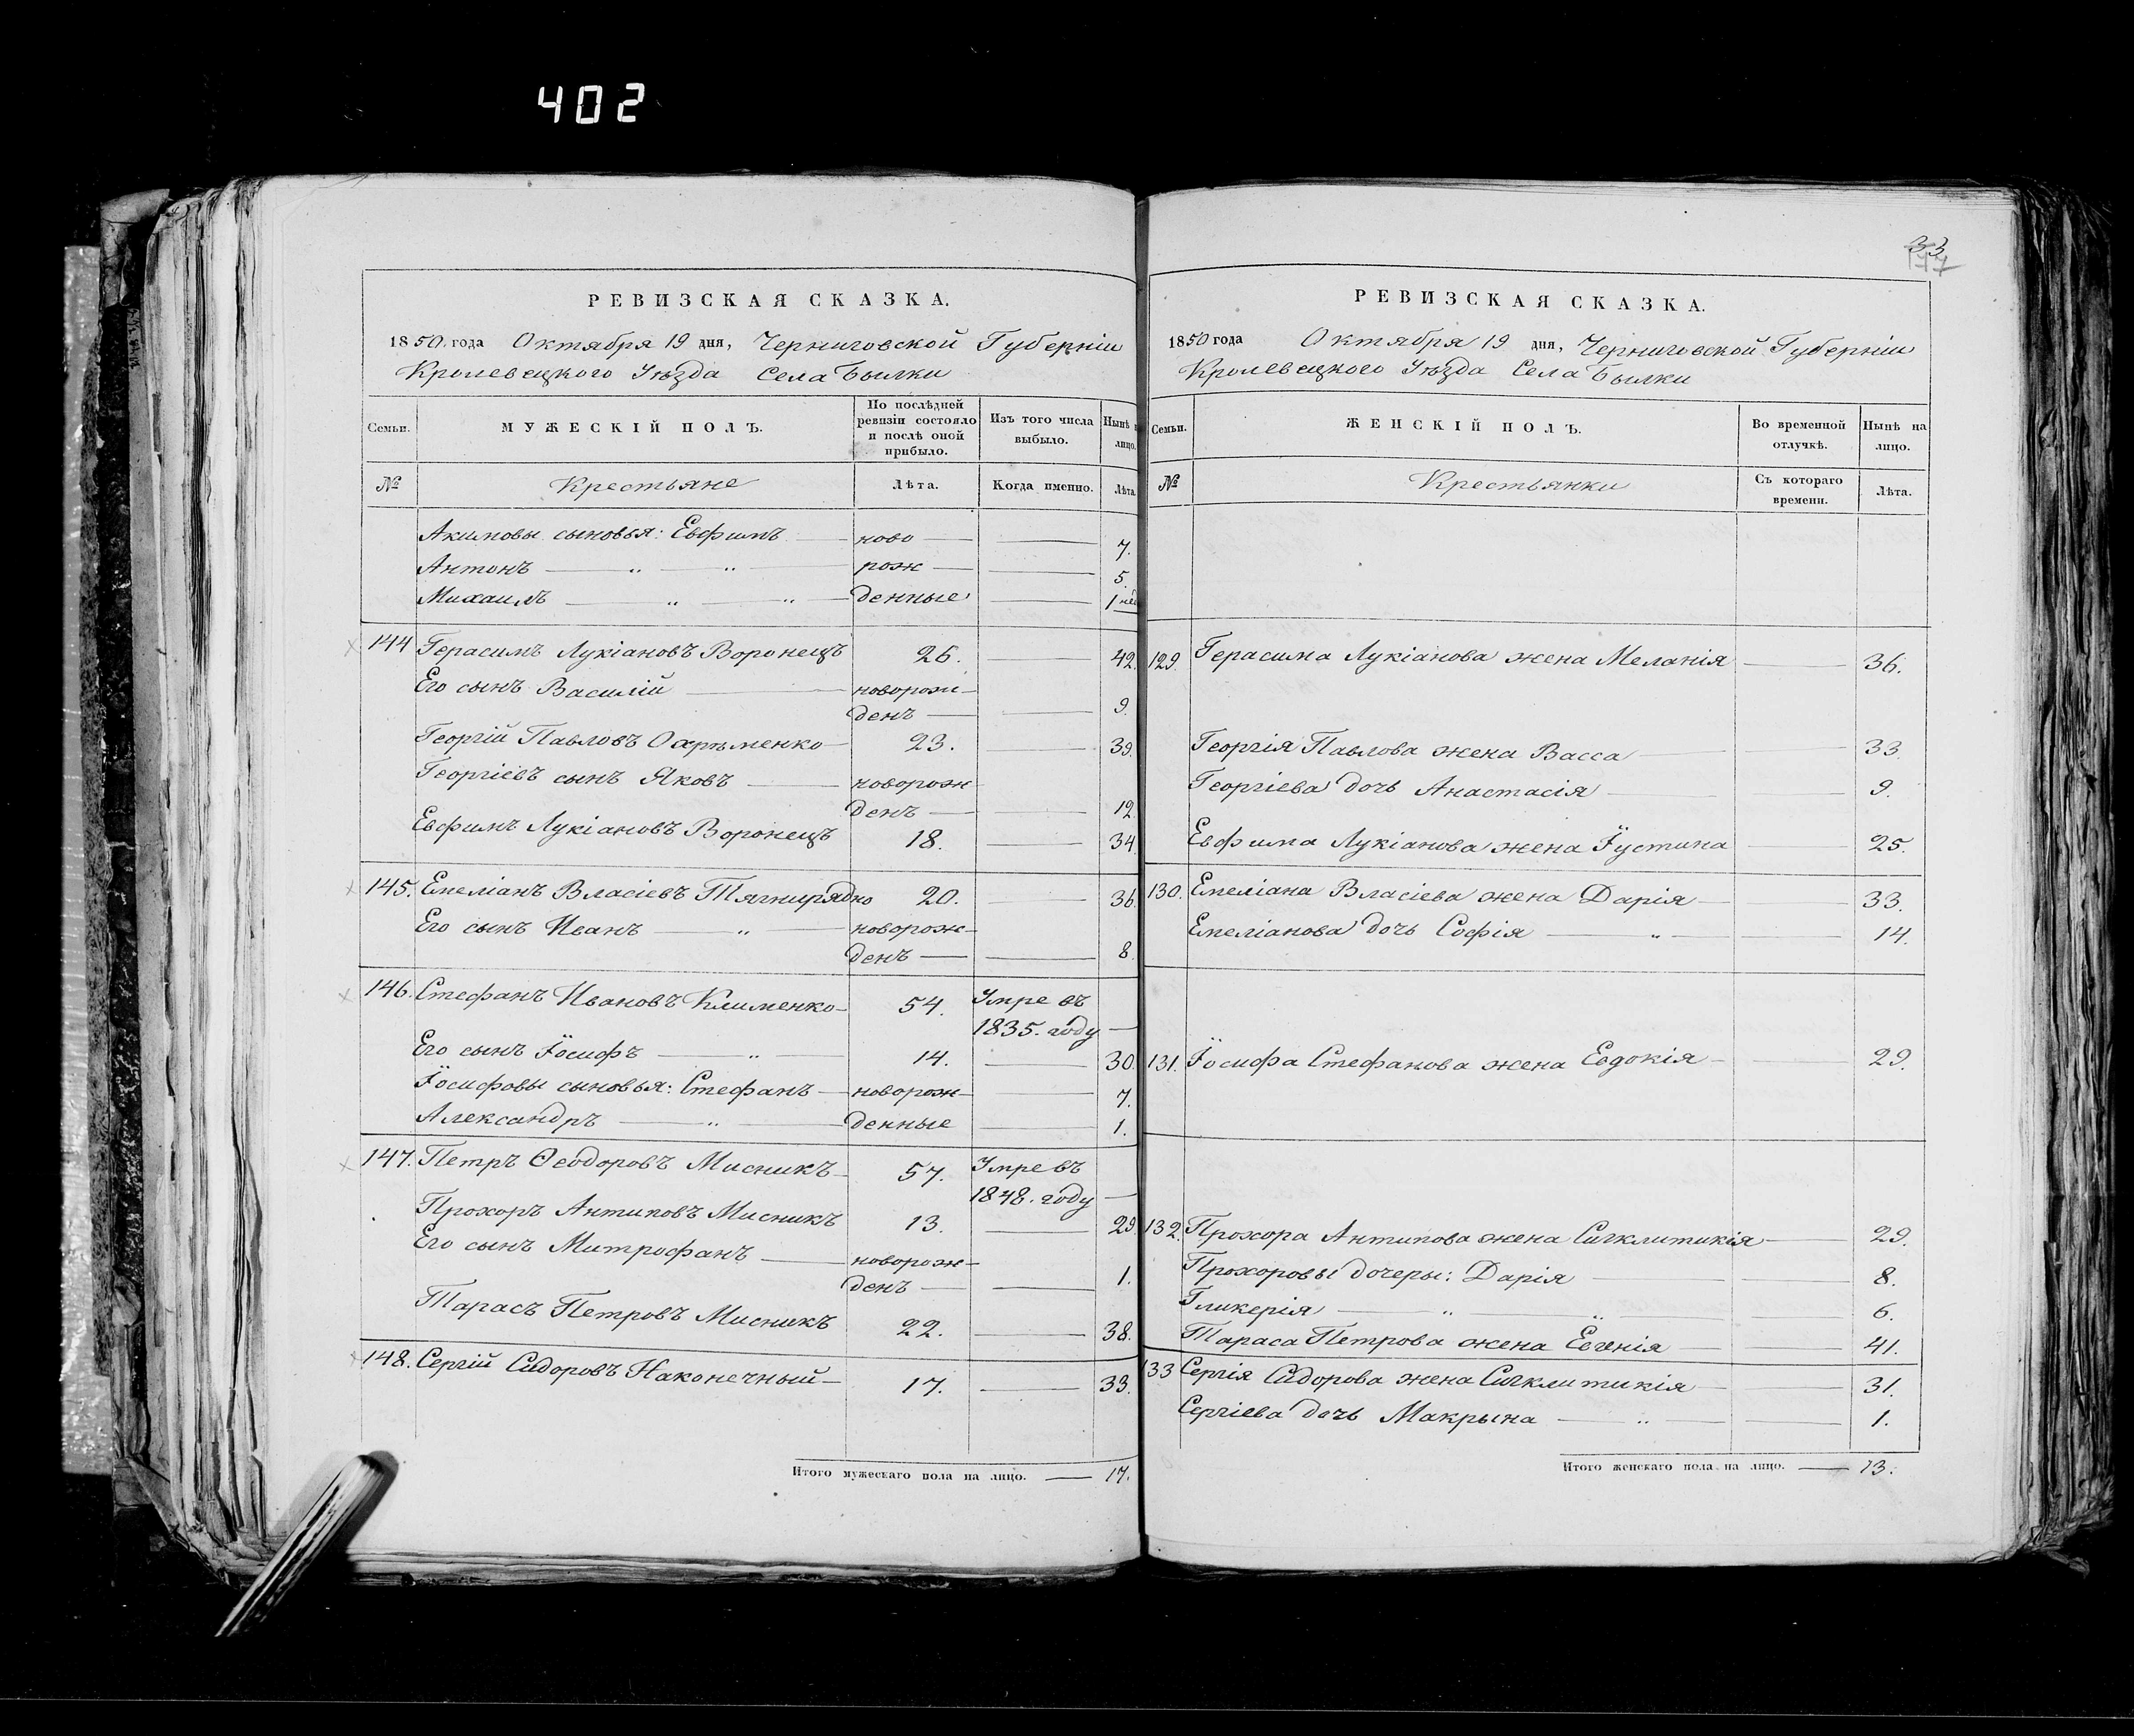 402
РЕВИЗСКАЯ СКАЗКА.
1850. года Октября 19 дня, Черниговской Губерніи
Кролевецкого Уѣзда Села Былки
Семьи.
МУЖЕСКІЙ ПОЛЪ.
По послѣдней
ревизіи состояло
и послѣ оной
прибыло.
Изъ того числа
выбыло.
Нынѣ на
лицо.
№ Крестьяне Лѣта. Когда именно. Лѣта
Акимовы сыновья: Евфимъ — ново — — 7.
Антонъ — „ — „ — рож — — 5.
Михаилъ — „ — „ — денные — 1 нед
144 Герасимъ Лукіановъ Воронецъ 26. — 42.
Его сынъ Василій — новорож-
денъ — — 9.
Георгій Павловъ Охрѣменко — 23. — 39.
Георгіевъ сынъ Яковъ — новорож
денъ — — 12.
Евфимъ Лукіановъ Воронецъ 18. — 34.
145. Емеліанъ Власіевъ Тягнирядно 20. — 36.
Его сынъ Иванъ — „ — новорож-
денъ — — 8.
146. Стефанъ Ивановъ Клименко — 54. Умре въ
1835. году —
Его сынъ Іосифъ — „ — 14. — 30.
Іосифовы сыновья: Стефанъ — новорож- — 7.
Александръ — „ — денные — 1.
147. Петръ Ѳеодоровъ Мисникъ — 57. Умре въ
1848. году —
Прохоръ Антиповъ Мисникъ 13. — 29.
Его сынъ Митрофанъ — новорож-
денъ — — 1.
Тарасъ Петровъ Мисникъ 22. — 38.
148. Сергій Сидоровъ Наконечный — 17. — 33.
Итого мужескаго пола на лицо. — 17.
33
РЕВИЗСКАЯ СКАЗКА.
1850 года Октября 19 дня, Черниговской Губерніи
Кролевецкого Уѣзда Села Былки
Семьи.
ЖЕНСКІЙ ПОЛЪ.
Во временной
отлучкѣ.
Нынѣ на
лицо.
№ Крестьянки
Съ котораго
времени.
Лѣта.
129. Герасима Лукіанова жена Меланія — 36.
Георгія Павлова жена Васса — — 33.
Георгіева дочь Анастасія — — 9.
Евфима Лукіанова жена Іустина — 25.
130. Емеліана Власіева жена Дарія — — 33.
Емеліанова дочь Софія — „ — — 14.
131. Іосифа Стефанова жена Евдокія — — 29.
132. Прохора Антипова жена Сигклитикія — 29.
Прохоровы дочеры: Дарія — — 8.
Гликерія — „ — „ — 6.
Тараса Петрова жена Евгенія — — 41.
133 Сергія Сидорова жена Сигклитикія — — 31.
Сергіева дочь Макрына — „ — — 1.
Итого женскаго пола на лицо. — 13.